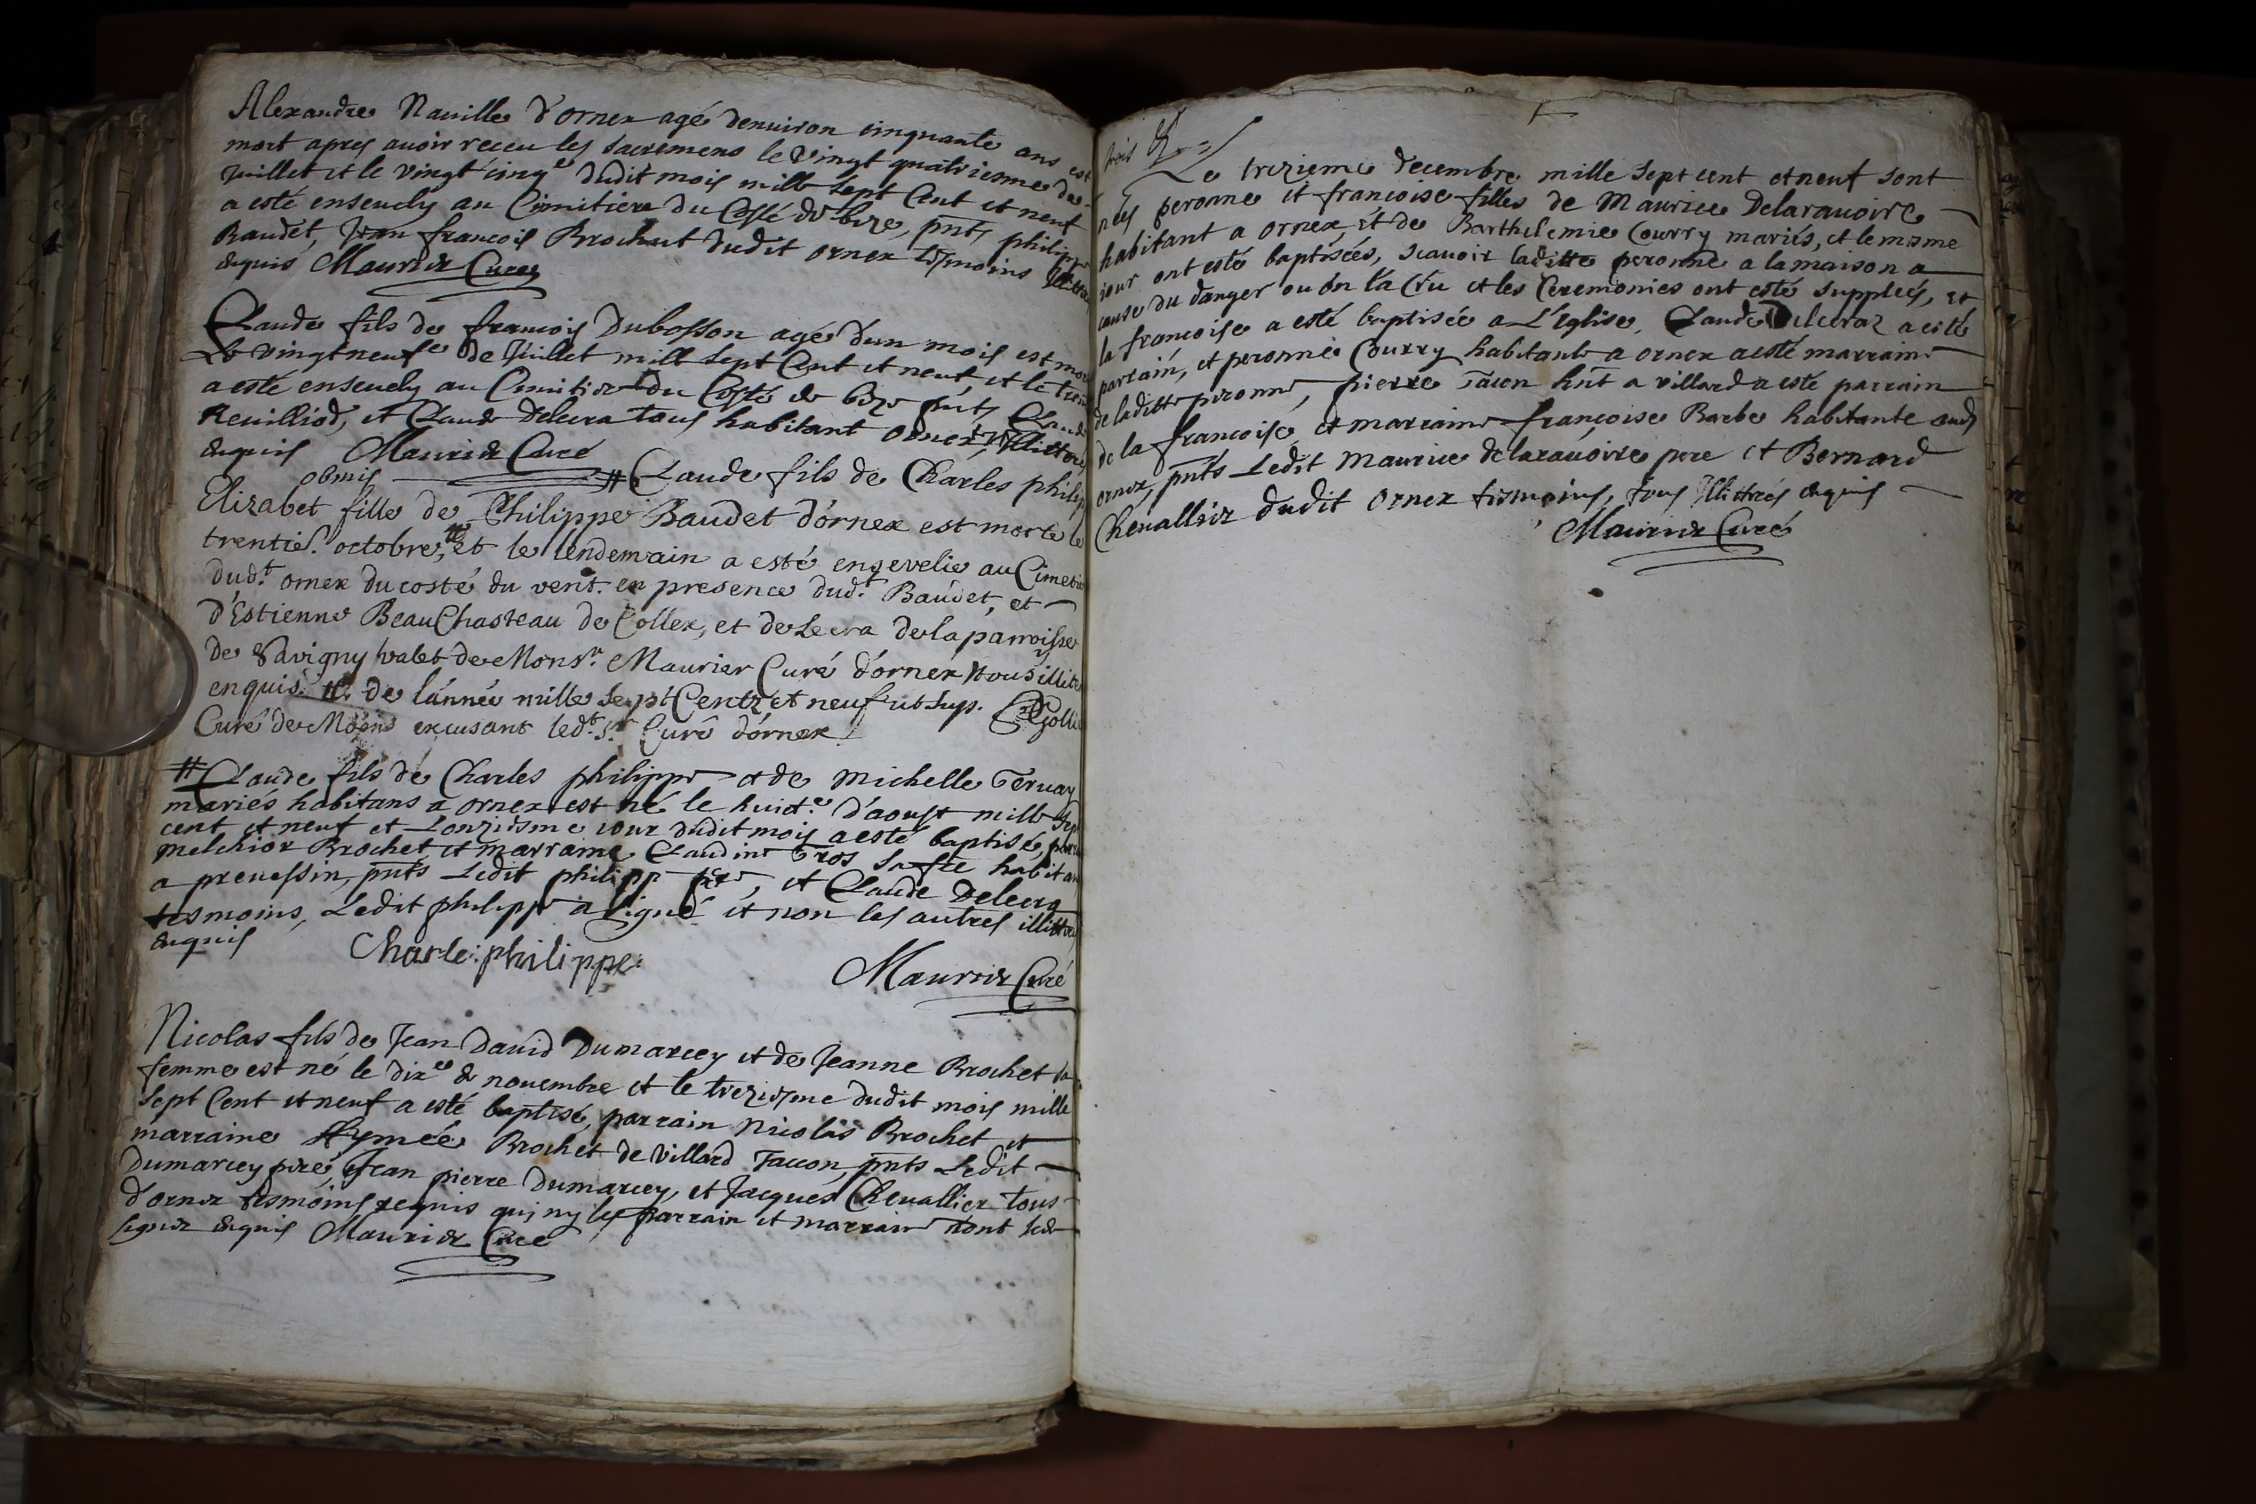 Alexandre Naville d'ornex agé denuiron cinquante ans est
mort apres auoir receu les sacremens le vingt quatriesme de
Juillet et le vingt cinq.e dudit mois mille sept Cent et neuf
a esté enseuely au Cimitiere du Costé de bize, pnts philippe
Baudet, Jean francois Brochet dudit ornex tesmoins
enquis Maurier Curé
Claude fils de francois Dubosson agé d'un mois est mort
Le vingtneuf.e de Juillet mill sept Cent et neuf, et le tren
a esté enseuely au Cimitiere du Costé de bize pnts Claude
Reuilliod, et Claude Delecra tous habitant ornex, illittere
enquis Maurier Curé
obmis # Claude fils de Charles philip
Elizabet fille de Philippe Baudet d'ornex est morte le
trentie. octobre, # et le lendemain a esté engevelie au Cimetie
dud.t ornex du costé du vent. en presence dud.t Baudet, et
d'Estienne BeauChasteau de Collex, et de Lecra de la parroisse
de Savigny valet de Mons.r Maurier Curé d'ornex tous illite
enquis. # de l'année mille sept Centz et neuf ut sup. Gollie
Curé de Moëns excusant led.t s.r Curé d'ornex
# Claude fils de Charles philippe et de Michelle Teruay
mariés habitans a ornex est né le huict.e d'aoust mille sep
cent et neuf et L'onziesme iour dudit mois a esté baptisé, par
melchior Brochet et marraine Claudine Gros sa fre habitan
a preuessin, pnts Ledit philippe pere, et Claude Delecra
tesmoins, Ledit philippe a signé et non les autres illitter
enquis
Charle: philippe:
Maurier Curé
Nicolas fils de Jean David Dumarcey et de Jeanne Brochet sa
femme est né le dix.e de nouembre et le trezieme dudit mois mille
sept Cent et neuf a esté baptisé, parrain Nicolas Brochet et
marraine Aymée Brochet de Villard Taccon, pnts Ledit
Dumarcey pere, Jean pierre Dumarcey, et Jacques Cheuallier tous
d'ornex tesmoins requis qui ny les parrain et marraine n'ont sceu
signer enquis Maurier Curé
Le trezieme decembre mille sept cent et neuf sont
nées peronne et francoise filles de Maurice Delarauoire
habitant a ornex, et de Barthelemie Courry mariés, et le mesme
iour ont esté baptisées, scauoir laditte peronne a la maison a
cause du danger ou on l'a cru et les Ceremonies ont esté supplees, et
la francoise a esté baptisée a L'eglise, Claude Delecraz a esté
parrain, et peronne Courry habitante a ornex a esté marraine
de laditte peronne, pierre Tacon hnt a villard a esté parrain
de la françoise, et marraine françoise Barbe habitante aud
ornex, pnts Ledit Maurice delarauoire pere et Bernard
Cheuallier dudit ornex tesmoins, tous Illittrés enquis
Maurier Curé